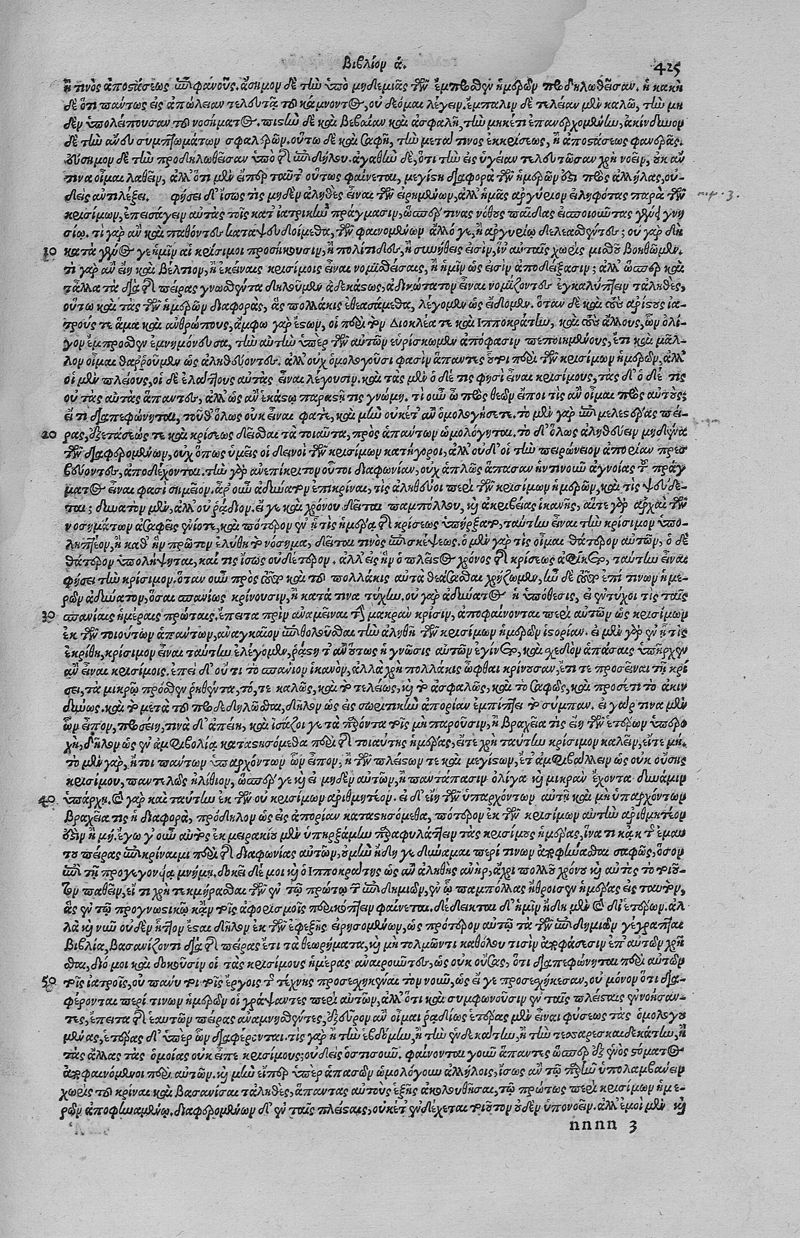 Βιβλίον ά.
425
ἤ τινος ἀποστάσεως ἐπιφανοῦς. ἄσημον δὲ τὴν ὑπὸ μηδεμιᾶς τῶν ἔμπροσθεν ἡμερῶν προδηλωθεῖσαν. ἢ κακὴ
δὲ ὅτι πάντως εἰς ἀπώλειαν τελευτᾷ τοῦ κάμνοντος, οὐ δέομαι λέγειν. ἔμπαλιν δὲ τελείαν μὲν καλῶ, τὴν μη
δὲν ὑπολείπουσαν τοῦ νοσήματος. πιστὴν δὲ καὶ βεβαίαν καὶ ἀσφαλῆ, τὴν μηκέτι ἐπανερχομένην, ἀκίνδυνον
δὲ τὴν ἄνευ συμπτωμάτων σφαλερῶν. οὕτω δὲ καὶ σαφῆ, τὴν μετά τινος ἐκκρίσεως, ἢ ἀποστάσεως φανερᾶς.
εὔσημον δὲ τὴν προδηλωθεῖσαν ὑπὸ τῆς ἐπιδήλου. ἀγαθὴν δὲ, ὅτι τὴν εἰς ὑγίειαν τελευτῶσαν χρὴ νοεῖν, οὐκ ἄν
τινα οἶμαι λαθεῖν, ἀλλ' ὅτι μὲν εἴπερ ταῦτ' οὕτως φαίνεται, μεγίστη διαφορὰ τῶν ἡμερῶν ἐστι πρὸς ἀλλήλας, οὐ-
δεὶς ἀντιλέξει. φήσει δ' ἴσως τις μηδὲν ἀληθὲς εἶναι τῶν εἰρημένων, ἀλλ' ἡμᾶς ἀργύριον εἰληφότας παρὰ τῶν
κρισίμων, ἐπεισάγειν αὐτὰς τοῖς κατ' ἰατρικὴν πράγμασιν, ὥσπερ τινας νόθους παῖδας εἰσποιοῦντας γένει γνη-
σίῳ. τί γὰρ ἂν καὶ παθόντων καταψευδοίμεθα, τῶν φαινομένων ἄλλο γε, ἢ ἀργυρίῳ δελεασθέντες; οὐ γὰρ δὴ
10 κατὰ γένος γε ἡμῖν αἱ κρίσιμοι προσήκουσιν, ἢ πολίτιδες, ἢ συνήθεις εἰσὶν, ἵν' αὐταῖς χωρὶς μισθοῦ βοηθῶμεν.
τί γὰρ ἂν εἴη καὶ βέλτιον, ἢ ἐκείναις κρισίμοις εἶναι νομισθείσαις, ἢ ἡμῖν ὡς εἰσὶν ἀποδείξασιν; ἀλλ' ὥσπερ καὶ
τἄλλα τὰ διὰ τῆς πείρας γνωσθέντα δηλοῦμεν ἀδεκάστως, ἀδικώτατον εἶναι νομίζοντες ἐγκαλύπτειν τἀληθὲς,
οὕτω καὶ τὰς τῶν ἡμερῶν διαφορὰς, ἃς πολλάκις ἐθεασάμεθα, λέγομεν ὡς εἴδομεν. ὅταν δὲ καὶ τοὺς ἀρίστους ἰα-
τρούς τε ἅμα καὶ ἀνθρώπους, ἄμφω γὰρ ἔστων, οἱ περὶ τὸν Διοκλέα τε καὶ Ἱπποκράτην, καὶ τοὺς ἄλλους, ὧν ὀλί-
γον ἔμπροσθεν ἐμνημόνευσα, τὴν αὐτὴν ὑπὲρ τῶν αὐτῶν εὑρίσκωμεν ἀπόφασιν πεποιημένους, ἔτι καὶ μᾶλ-
λον οἶμαι θαρροῦμεν ὡς ἀληθεύοντες. ἀλλ' οὐχ ὁμολογοῦσί φασιν ἅπαντες οἱ περὶ κρισίμων ἡμερῶν, ἀλλ'
οἱ μὲν πλείους, οἱ δὲ ἐλάττους αὐτὰς εἶναι λέγουσιν. καὶ τὰς μὲν ὁ δέ τις φησὶ εἶναι κρισίμους, τὰς δ' ὁ δέ τις
οὐ τὰς αὐτὰς ἅπαντες, ἀλλ' ὡς ἂν ἑκάστῳ παρεκστῇ τις γνώμη. τί οὖν ὦ πρὸς θεῶν εἴποι τις ἂν οἶμαι πρὸς αὐτούς;
εἴ τι διαπεφώνηται, τοῦθ' ὅλως οὐκ εἶναι φατὲ, καὶ μὴν οὐκέτ' ἂν ὁμολογήσετε. τὸ μὲν γὰρ ἐπιμελεστέρας πεί-
20 ρας, ἐξετάσεώς τε καὶ κρίσεως δεῖσθαι τὰ τοιαῦτα, πρὸς ἁπάντων ὡμολόγηται. τὸ δ' ὅλως ἀληθεύειν μηδένα
τῶν διαφερομένων, οὐχ ὅπως ὑμεῖς οἱ δεινοὶ τῶν κρισίμων κατήγοροι, ἀλλ' οὐδ' οἱ τὴν Πυρώνειον ἀπορίαν πρεσ-
βεύοντες, ἀποδέχονται. τὴν γὰρ ἀνεπίκριτον οὗτοι διαφωνίαν, οὐχ ἁπλῶς ἅπασαν ἡντινοῦν ἀγνοίας τῶν πραγ-
μάτων εἶναι φασὶ σημεῖον. ἆρ' οὖν ἀδύνατον ἐπικρῖναι, τίς ἀληθεύει περὶ τῶν κρισίμων ἡμερῶν, καὶ τίς ψεύδε-
ται; δυνατὸν μὲν, ἀλλ' οὐ ῥᾴδιον. εἴγε καὶ χρόνου δεῖται παμπόλλου, καὶ ἀκριβείας ἱκανῆς, αἵτε γὰρ ἀρχαὶ τῶν
νοσημάτων ἀσαφεῖς ἐνίοτε, καὶ πότερον ἐν ᾗ τις ἡμέρᾳ τῆς κρίσεως ὑπήρξατο, ταύτην εἶναι τὴν κρίσιμον ὑπο-
ληπτέον, ἢ καθ' ἣν πρῶτον ἐλύθη τὸ νόσημα, δεῖταί τινος ἐπισκέψεως. ὁ μὲν γάρ τις οἶμαι θάτερον αὐτῶν, ὁ δὲ
θάτερον ὑπολήψεται, καί τις ἴσως οὐδέτερον. ἀλλ' εἰς ἣν ὁ πλεῖστος χρόνος τῆς κρίσεως ἀφίκετο, ταύτην εἶναι
φήσει τὴν κρίσιμον, ὅταν οὖν πρὸς τοῦτο καὶ τοῦ πολλάκις αὐτὰ θεάσασθαι χρῄζωμεν, ἦν δὲ τοῦτο ἐπί τινων ἡμε-
ρῶν ἀδύνατον, ὅσαι σπανίως κρίνουσιν, ἢ κατά τινα τύχην. οὐ γὰρ ἀδύνατος ἡ ὑπόθεσις, εἰ ἐντύχοι τις ταῖς
30 σπανίαις ἡμέραις πρώταις, ἔπειτα πρὶν ἀναμεῖναι τὴν μακρὰν κρίσιν, ἀποφαίνονται περὶ αὐτῶν ὡς κρισίμων
ἐκ τῶν τοιούτων ἁπάντων, ἀναγκαῖον ἐπιθολοῦσθαι τὴν ἀληθῆ τῶν κρισίμων ἡμερῶν ἱστορίαν. εἰ μὲν γὰρ ἐν ᾗ τις
ἐκρίθη, κρίσιμον εἶναι ταύτην ἐλέγομεν, ῥᾴστη τ' ἂν οὕτως ἡ γνῶσις αὐτῶν ἐγίνετο, καὶ σχεδὸν ἁπάσαις ὑπῆρχεν
ἂν εἶναι κρισίμοις. ἐπεὶ δ' οὔτι τὸ σπάνιον ἱκανὸν, ἀλλὰ χρὴ πολλάκις ὦφθαι κρίνουσαν, ἔτι τε προσεῖναι τῇ κρί-
σει, τὰ μικρῷ πρόσθεν ῥηθέντα, τό, τε καλῶς, καὶ τὸ τελείως, καὶ τὸ ἀσφαλῶς, καὶ τὸ σαφῶς, καὶ προσέτι τὸ ἀκιν
δύνως. καὶ τὸ μετὰ τοῦ προδεδηλῶσθαι, δῆλον ὡς εἰς σωριτικὴν ἀπορίαν ἐμπίπτει τὸ σύμπαν. εἰ γάρ τινα μὲν
ὧν εἶπον, προσείη, τινὰ δ' ἀπείη, καὶ ἰσάζοι γε τὰ παρόντα τοῖς μὴ παροῦσιν, ἢ βραχεῖά τις εἴη τῶν ἑτέρων ὑπερο-
χὴ, δῆλον ὡς ἐν ἀμφιβολίᾳ καταστησόμεθα περὶ τῆς τοιαύτης ἡμέρας, εἴτε χρὴ ταύτην κρίσιμον καλεῖν, εἴτε μή.
τὸ μὲν γὰρ, ἤτοι πάντων ὑπαρχόντων ὧν εἶπον, ἢ τῶν πλείστων τε καὶ μεγίστων, ἔτ' ἀμφιβάλλειν ὡς οὐκ οὔσης
κρισίμου, παντελῶς ἠλίθιον, ὥσπερ γε καὶ εἰ μηδὲν αὐτῶν, ἢ παντάπασιν ὀλίγα καὶ μικρὰν ἔχοντα δύναμιν
40 ὑπάρχῃ. τί γὰρ καὶ ταύτην ἐκ τῶν οὐ κρισίμων ἀριθμητέον. εἰ δ' εἴη τῶν ὑπαρχόντων αὐτῇ καὶ μὴ ὑπαρχόντων
βραχεῖά τις ἡ διαφορὰ, πρόδηλον ὡς εἰς ἀπορίαν καταστησόμεθα, πότερον ἐκ τῶν κρισίμων αὐτὴν ἀριθμητέον
ἐστὶν ἢ μή. ἐγώ γ' οὖν αὐτὸς ἐκ μειρακίου μὲν ὑπηρξάμην παραφυλάττειν τὰς κρισίμους ἡμέρας, ἵνα τι κᾀκ τῆς ἐμαυ
τοῦ πείρας ἐπικρίναιμι περὶ τῆς διαφωνίας αὐτῶν, ὅμως ἤδη γε δύναμαι περί τινων ἀποφήνασθαι σαφῶς, ὅσον
ἐπὶ τῇ προγεγονυίᾳ μνήμῃ, δοκεῖ δέ μοι καὶ ὁ Ἱπποκράτης ὡς ἂν ἀληθὴς ἀνὴρ, ἄχρι πολλοῦ χρόνου καὶ αὐτὸς τὸ τοιοῦ-
τον παθεῖν, εἴ τι χρὴ τεκμήρασθαι τῶν ἐν τῷ πρώτῳ τῶν ἐπιδημιῶν, ἐν ᾧ παμπόλλας ἤθροισεν ἡμέρας εἰς ταὐτὸν,
ἃς ἐν τῷ προγνωστικῷ κᾀν τοῖς ἀφορισμοῖς περικόπτειν φαίνεται. δέδεικται δ' ἡμῖν ἤδη μὲν τοῦτο δι' ἑτέρων. ἀλ-
λὰ καὶ νῦν οὐδὲν ἧττον ἔσται δῆλον ἐκ τῶν ἐφεξῆς εἰρησομένων, ὡς πρότερον αὐτῷ τὰ τῶν ἐπιδημιῶν γέγραπται
βιβλία, βασανίζοντι διὰ τῆς πείρας ἔτι τὰ θεωρήματα, καὶ μὴ τολμῶντι καθόλου τισὶν ἀποφάσεσιν ἐπ' αὐτῶν χρῆ
σθαι, διό μοι καὶ δοκοῦσιν οἱ τὰς κρισίμους ἡμέρας ἀναιροῦντες, ὡς οὐκ οὔσας, ὅτι διαπεφώνηται περὶ αὐτῶν
50 τοῖς ἰατροῖς, οὐ πάνυ τι τοῖς ἔργοις τῆς τέχνης προσεσχηκέναι τὸν νοῦν, ὡς εἴ γε προσεσχήκεσαν, οὐ μόνον ὅτι δια-
φέρονται περί τινων ἡμερῶν οἱ γράψαντες περὶ αὐτῶν, ἀλλ' ὅτι καὶ συμφωνοῦσιν ἐν ταῖς πλείσταις ἐννοήσαν-
τες, ἔπειτα τῆς ἑαυτῶν πείρας ἀναμνησθέντες, ἐξεῦρον ἂν οἶμαι ῥᾳδίως ἑτέρας μὲν εἶναι φύσεως τὰς ὁμολογου
μένας, ἑτέρας δ' ὑπὲρ ὧν διαφέρονται. τίς γὰρ ἢ τὴν ἑβδόμην, ἢ τὴν ἑνδεκάτην, ἢ τὴν τεσσαρεσκαιδεκάτην, ἢ
τὰς ἄλλας τὰς ὁμοίας οὐκ εἶπε κρισίμους; οὐδεὶς ὁστισοῦν. φαίνονται γοῦν ἅπαντες ὥσπερ ἐξ ἑνὸς στόματος
ἀποφαινόμενοι περὶ αὐτῶν. καὶ μὴν εἴπερ ὑπὲρ ἁπασῶν ὡμολόγουν ἀλλήλοις, ἴσως ἄν τῳ παρέστη ὑπολαμβάνειν
χωρὶς τοῦ κρῖναι καὶ βασανίσαι τἀληθὲς, ἅπαντας αὐτοὺς ἑξῆς ἀκολουθῆσαι, τῷ πρώτως περὶ κρισίμων ἡμε-
ρῶν ἀποφηναμένῳ. διαφερομένων δ' ἐν ταῖς πλείσταις, οὐκέτ' ἐνδέχεται τοιοῦτον οὐδὲν ὑπονοεῖν. ἀλλ' ἐμοὶ μὲν καὶ
nnnn 3